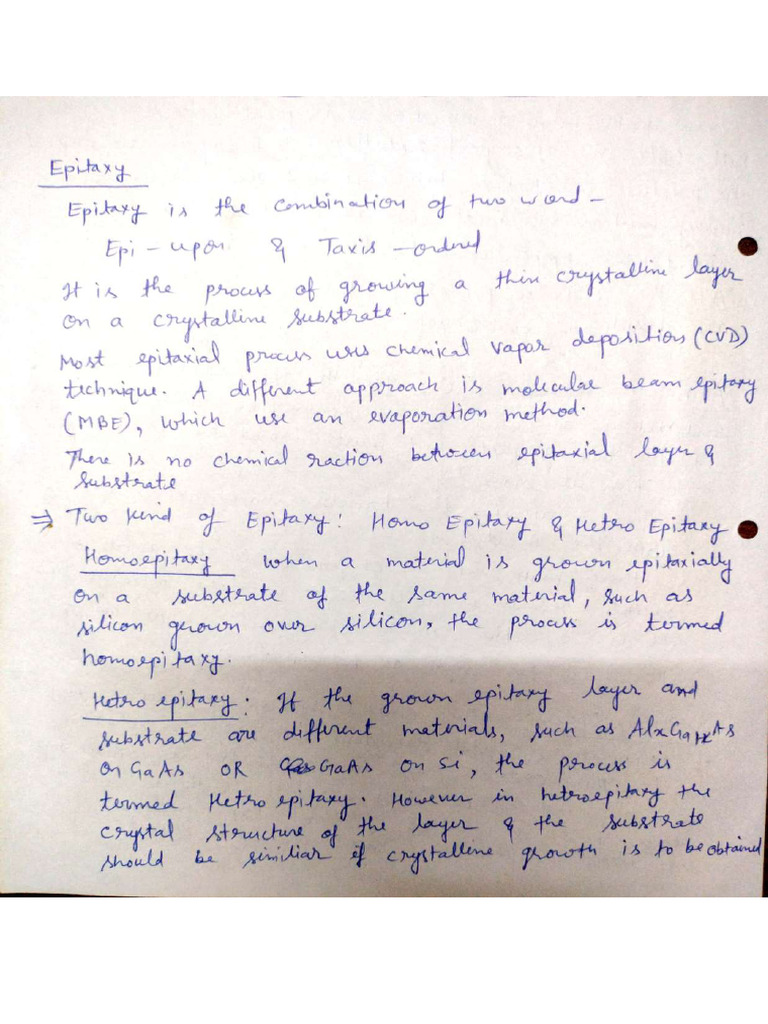 Epitaxy
Epitaxy is the combination of two word -
Epi - upon & Taxis - ordered
It is the process of growing a thin crystalline layer
on a crystalline substrate.
Most epitaxial process uses chemical vapor deposition (CVD)
technique. A different approach is molecular beam epitaxy
(MBE), which use an evaporation method.
There is no chemical raction between epitaxial layer &
substrate
⇒ Two kind of Epitaxy: Homo Epitaxy & Hetro Epitaxy
Homoepitaxy when a material is grown epitaxially
on a substrate of the same material, such as
silicon grown over silicon, the process is termed
homoepitaxy.
Hetro epitaxy: If the grown epitaxy layer and
substrate are different materials, such as AlxGa1-xAs
on GaAs OR GaAs on Si, the process is
termed Hetro epitaxy. However in hetroepitaxy the
crystal structure of the layer & the substrate
should be similiar if crystalline growth is to be obtained